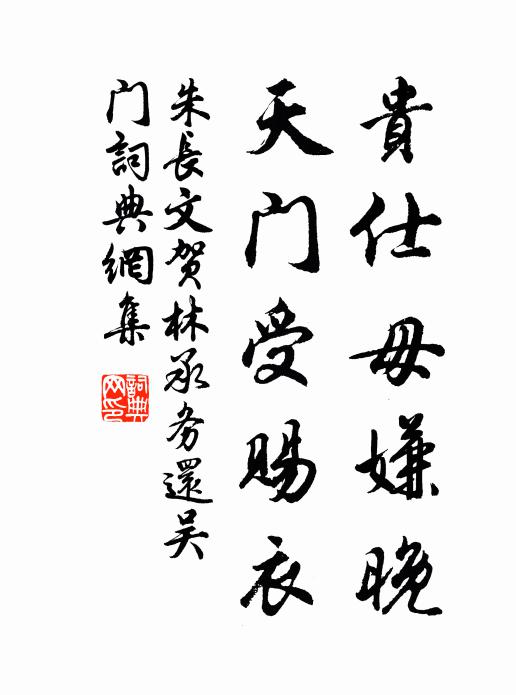 貴仕毋嫌晚
天门受賜衣
朱長文贺林承务還吴
门詞典網集
詞典网印